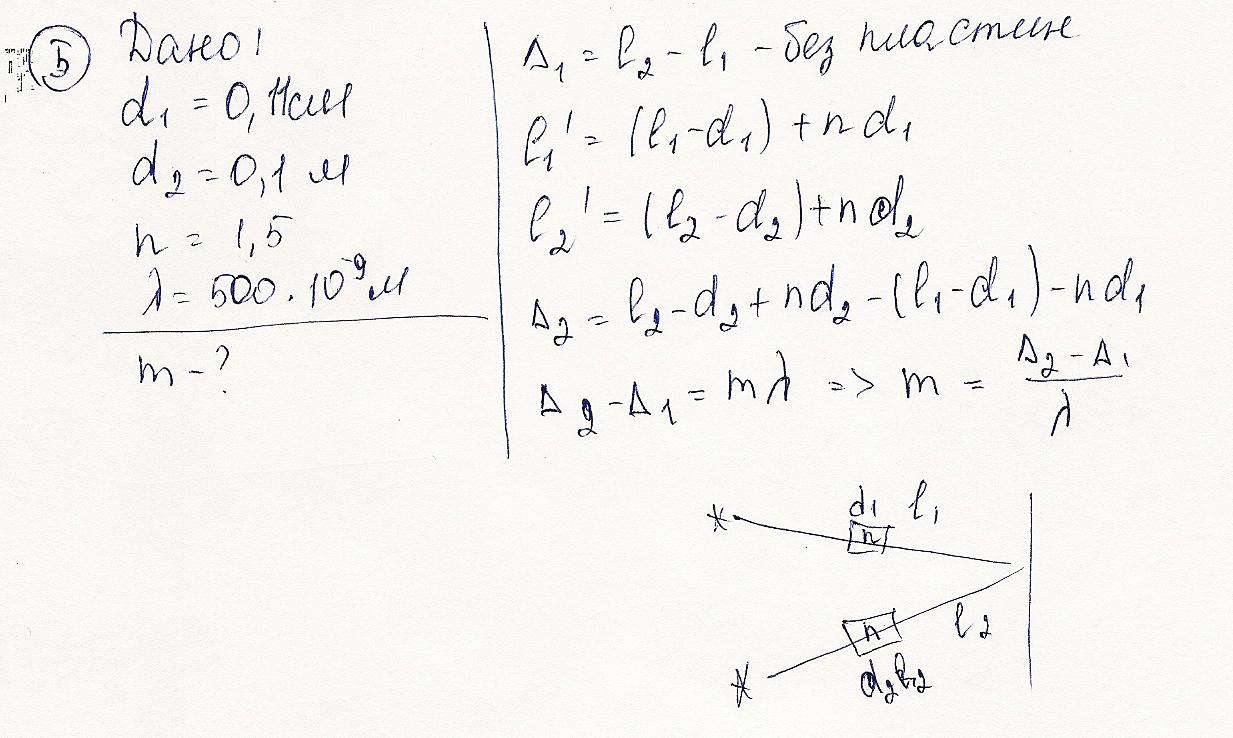 5 Дано!
d₁ = 0,11см
d₂ = 0,1 м
n = 1,5
λ = 500 · 10⁻⁹ м
m - ?
Δ₁ = l₂ - l₁ - без пластин
l₁' = (l₁ - d₁) + n d₁
l₂' = (l₂ - d₂) + n d₂
Δ₂ = l₂ - d₂ + nd₂ - (l₁ - d₁) - nd₁
Δ₂ - Δ₁ = mλ => m = (Δ₂ - Δ₁) / λ
d₁ l₁
n
n l₂
d₂